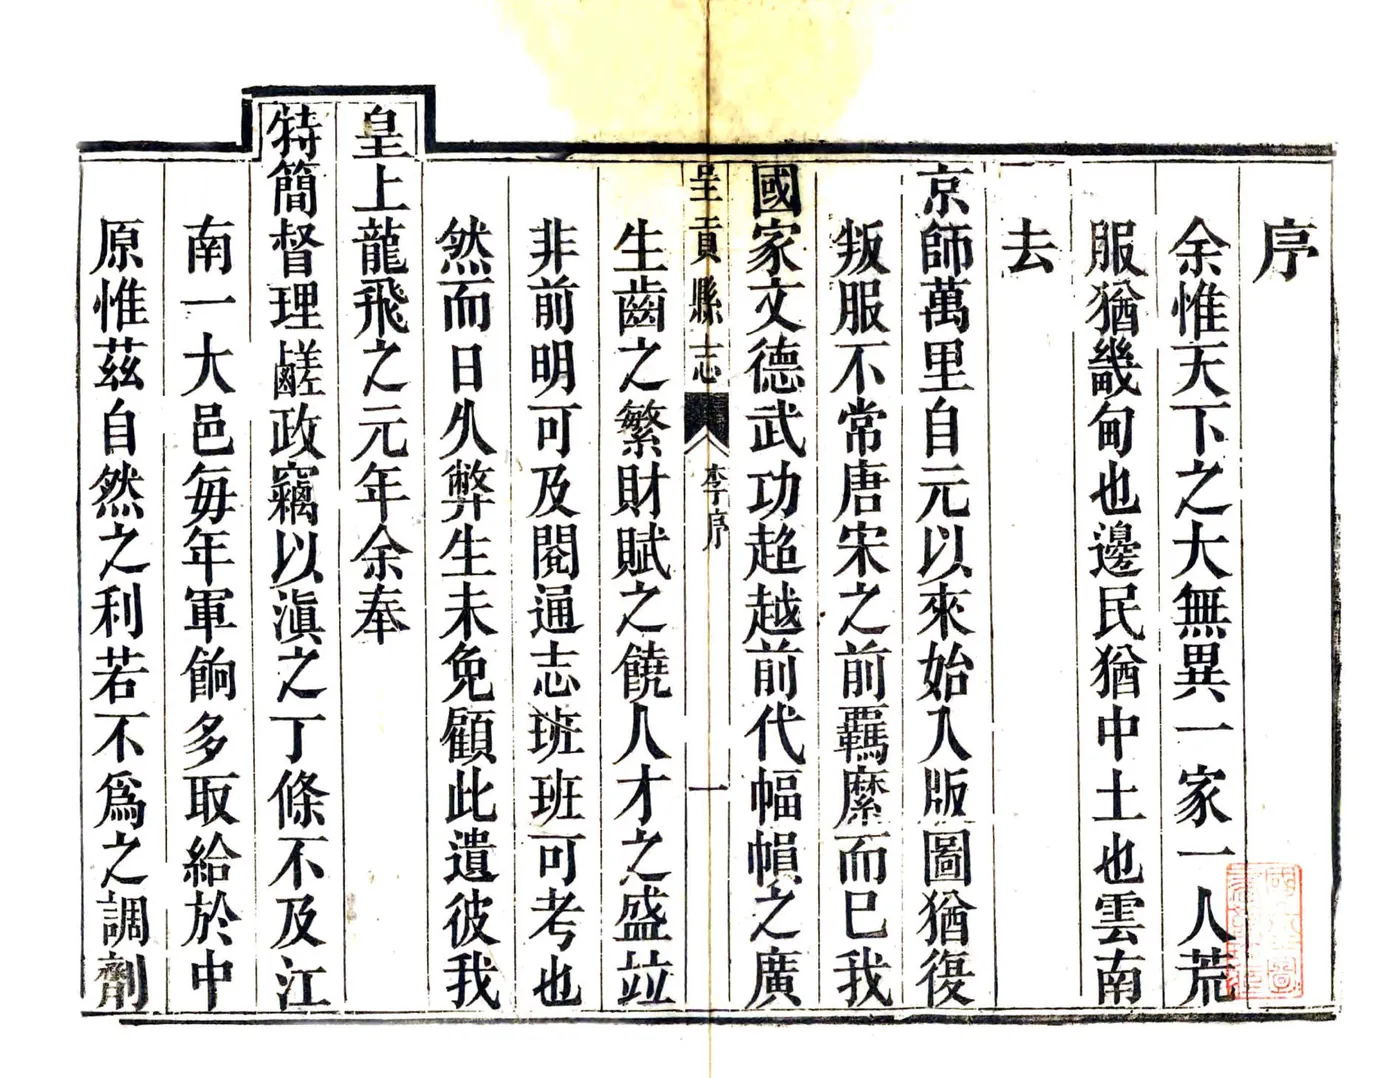 序
余惟天下之大無異一家一人荒
服猶畿甸也邊民猶中土也雲南
去
京師萬里自元以來始入版圖猶復
叛服不常唐宋之前羈縻而已我
國家文德武功超越前代幅幀之廣
呈貢縣志
李序
一
生齒之繁財賦之饒人才之盛竝
非前明可及閱通志班班可考也
然而日久弊生未免顧此遺彼我
皇上龍飛之元年余奉
特簡督理鹺政竊以滇之丁條不及江
南一大邑每年軍餉多取給於中
原惟茲自然之利若不為之調劑